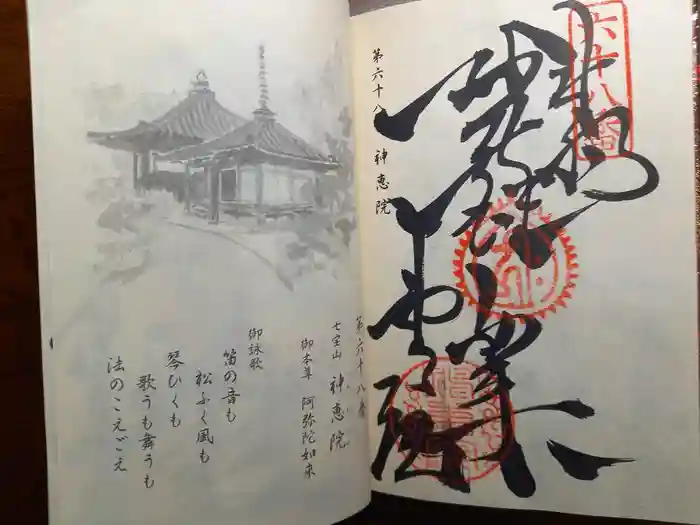 六十八番
奉納
第六十八 神恵院
第六十八番
七宝山 神恵院
御本尊 阿弥陀如来
御詠歌
笛の音も
松ふく風も
琴ひくも
歌うも舞うも
法のこえごえ